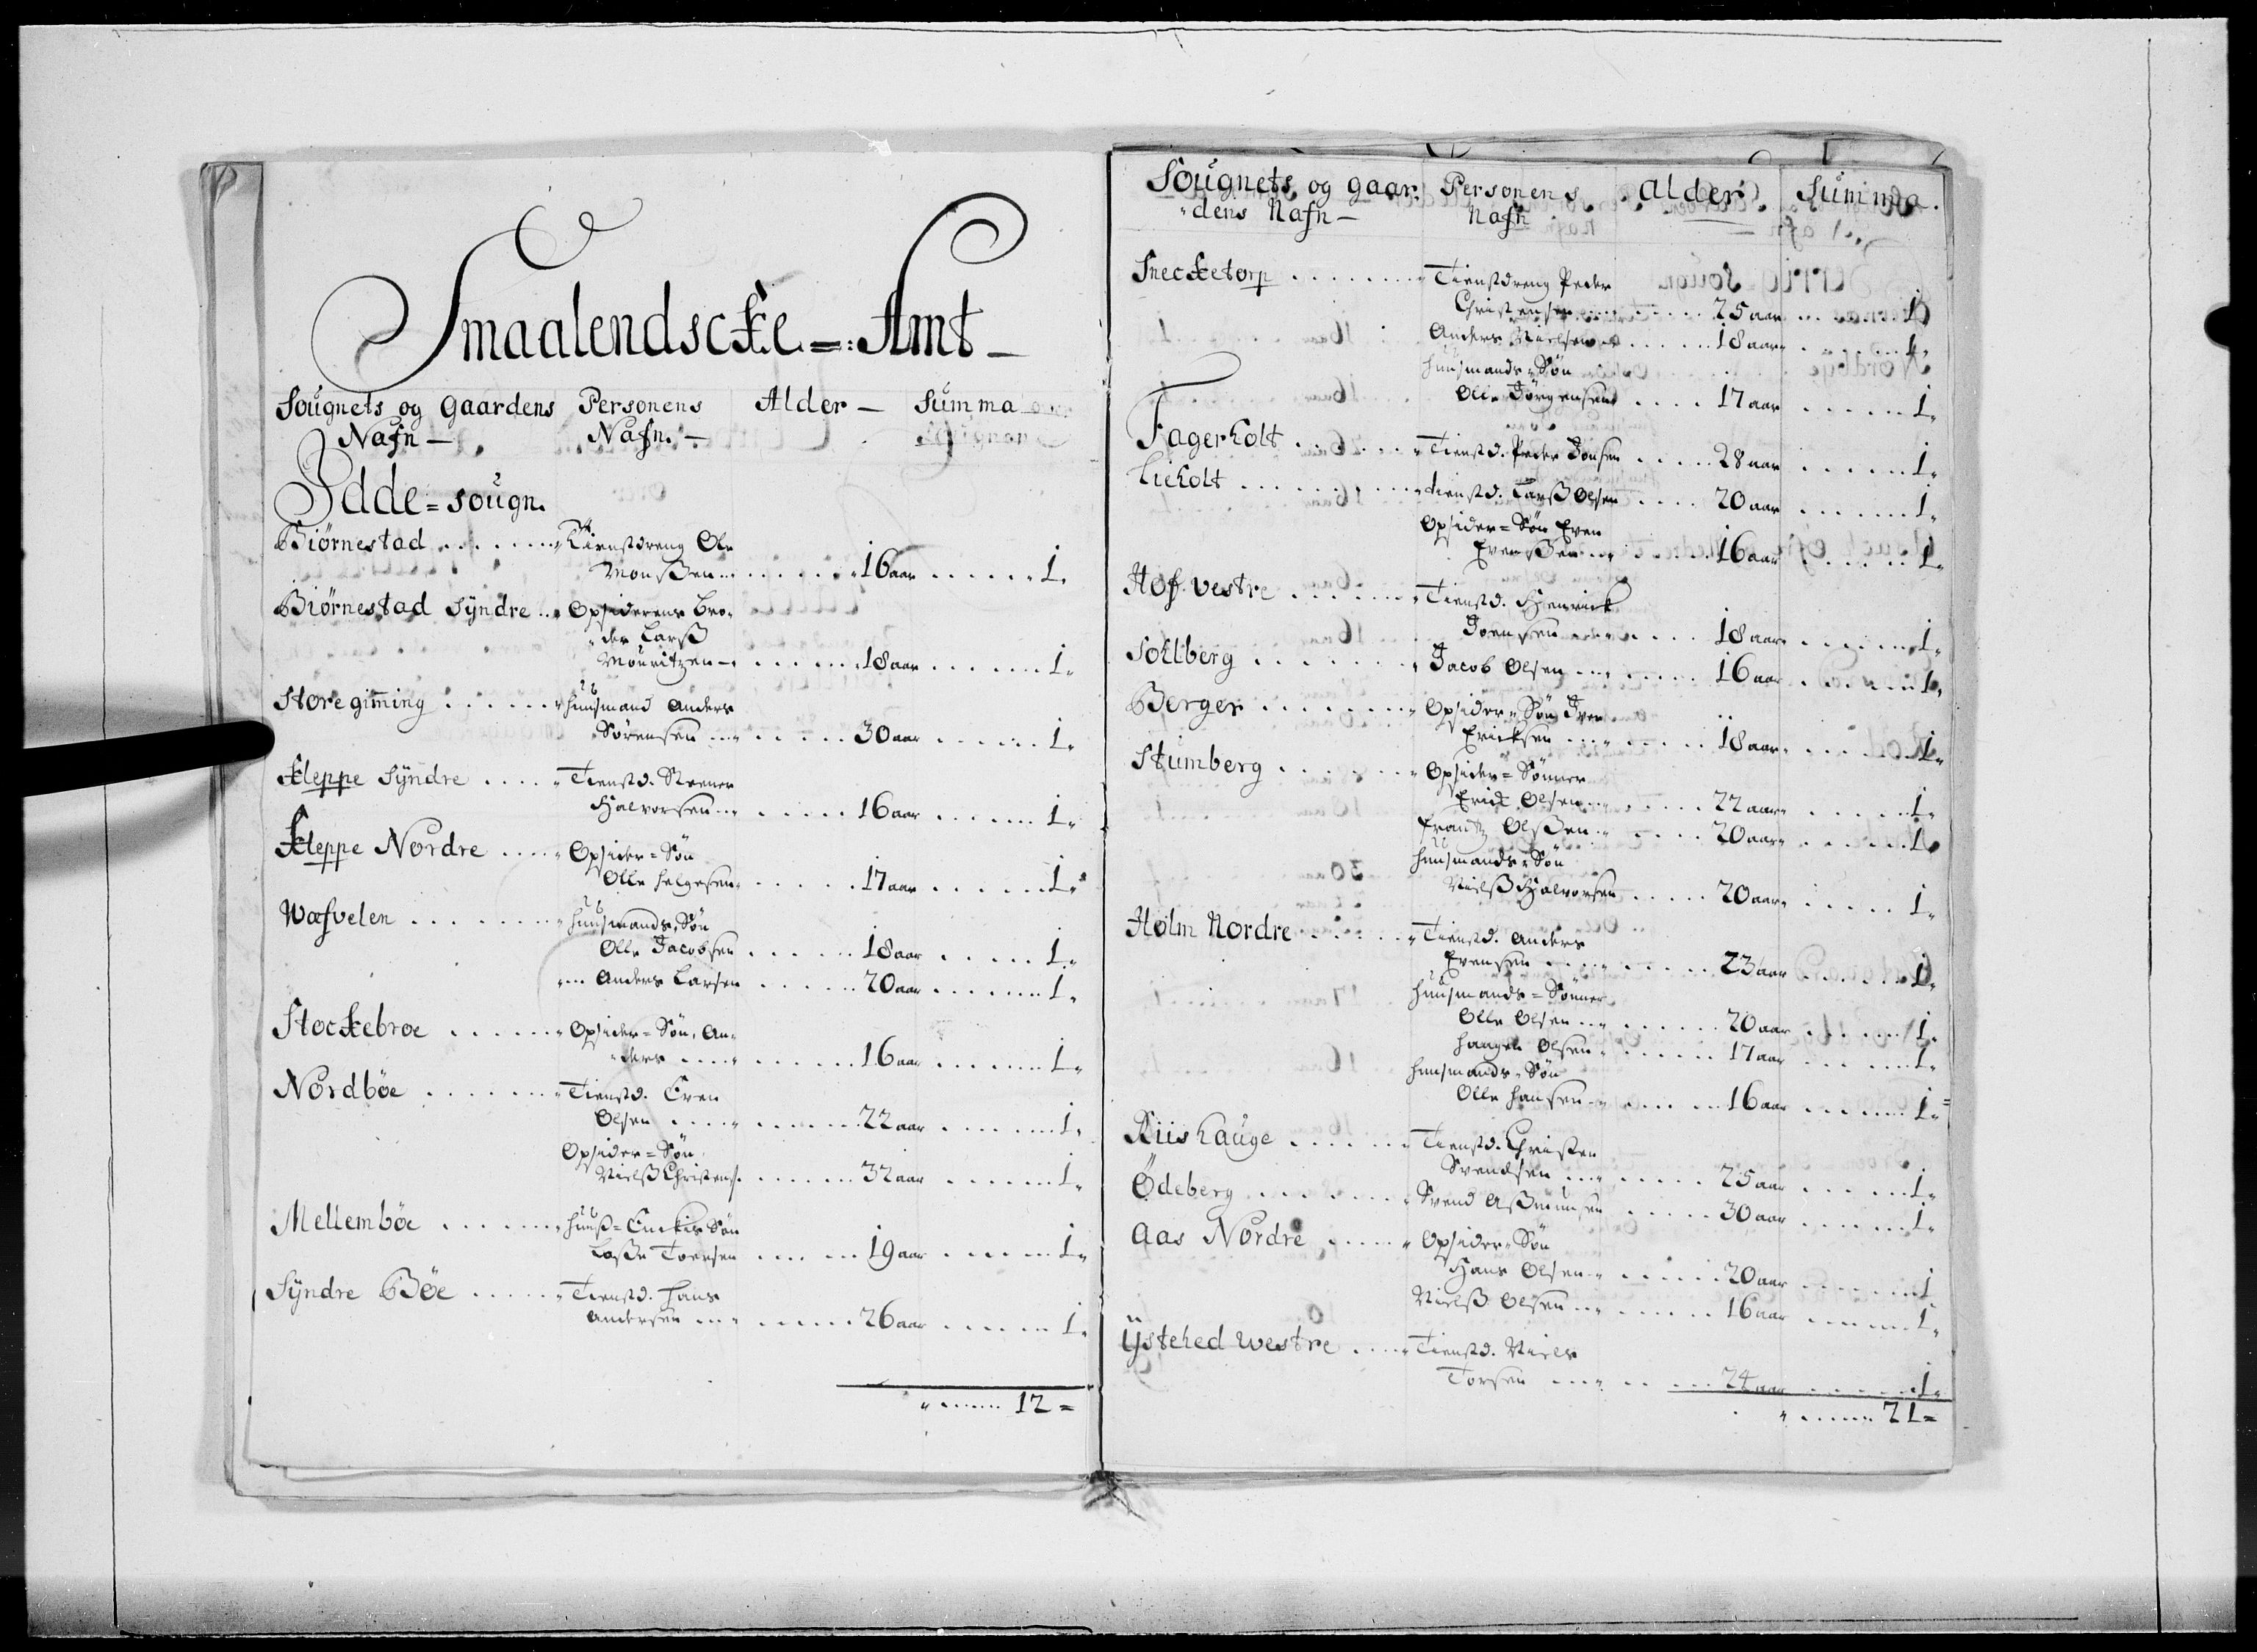 Smaalendscke =: Amt —
Sougnets og Gaardens Personens Alder — Summa
Nafn — Nafn. —
Idde = sougn.
Biørnestad ....... Tienstdreng Ole
Monsßen ....... 16 aar ...... 1.
Biørnestad Syndre .. Opsiderens bro-
der Larß
Mouritzen — ...... 18 aar ...... 1.
Store gim̄ing ...... huusmand Anders
Sørensen ....... 30 aar ...... 1.
Kleppe Syndre .... Tienstd. Steener
Halvorsen ....... 16 aar ...... 1.
Kleppe Nordre .... Opsider = Søn
Olle Helgesen ...... 17 aar ...... 1.
Wæfvelen ....... huusmands Søn
Olle Jacobsen ...... 18 aar ..... 1.
Anders Larsen ...... 20 aar ...... 1.
Stockebroe ...... Opsider = Søn, An-
ders ....... 16 aar ...... 1.
Nordbøe ....... Tienstd. Even
Olsen ....... 22 aar ...... 1.
Opsider = Søn
Nielß Christens. ...... 32 aar ...... 1.
Mellembøe ...... huuß = Enckes Søn
Laße Toersen ...... 19 aar ...... 1.
Syndre Bøe ..... Tienstd. Hans
Andersen ....... 26 aar ...... 1.
....... 12 =
Sougnets og gaar- Personens Alder Summa.
dens Nafn — Nafn
Snecketorp ....... Tienstdreng Peder
Christensen ...... 25 aar ...... 1.
Anders Nielsen ..... 18 aar ...... 1.
huusmands Søn
Olle Jørgensen .... 17 aar ...... 1.
Fagerholt ....... Tienstd. Peder Jonsen ..... 28 aar ...... 1.
Lieholt ......... tienstd. Larß Olsen .... 20 aar ...... 1.
Opsider = Søn Even
Evensßen ....... 16 aar ...... 1.
Hof vestre ...... Tienstd. Henrick
Joensen ....... 18 aar ...... 1.
Sollberg ....... Jacob Olsen ....... 16 aar ...... 1.
Berger ....... Opsider = Søn Iver
Ericksen ....... 18 aar ...... 1.
Stumberg ...... Opsider = Sønner
Erick Olsen ...... 22 aar ...... 1.
Frantz Olsßen ..... 20 aar ...... 1.
huusmands Søn
Nielß Halvorsen ..... 20 aar ..... 1.
Holm Nordre ..... Tienstd. Anders
Evensen ....... 23 aar ...... 1.
huusmands = Sønner
Olle Olsen ....... 20 aar ...... 1.
Haagen Olsen ...... 17 aar ...... 1.
huusmands Søn
Olle Hansen ...... 16 aar ...... 1 =
Riishauge ...... Tienstd. Christen
Svendsen ....... 25 aar ...... 1.
Ødeberg ....... Svend Aßmunsen ..... 30 aar ...... 1.
Aas Nordre ..... Opsider Søn
Hans Olsen ...... 20 aar ...... 1
Nielß Olsen ....... 16 aar ...... 1.
Ystehed westre .... Tienstd. Niels
Torsen ....... 24 aar ...... 1.
....... 21 =